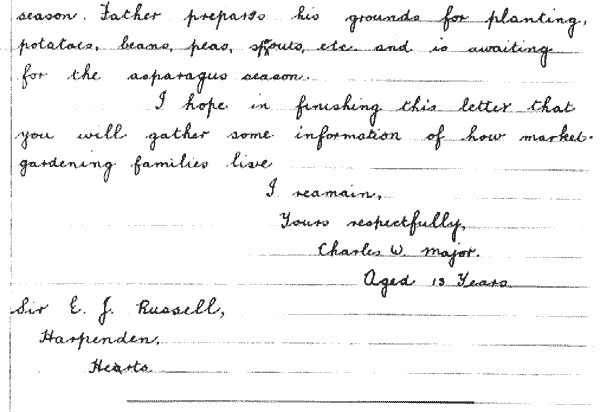 season. Father prepares his grounds for planting,
potatoes, beans, peas, sprouts, etc. and is awaiting
for the asparagus season.
I hope in finishing this letter that
you will gather some information of how market-
gardening families live
I reamain,
Yours respectfully,
Charles W. Major.
Aged 13 Years
Sir E. J. Russell,
Harpenden,
Hearts